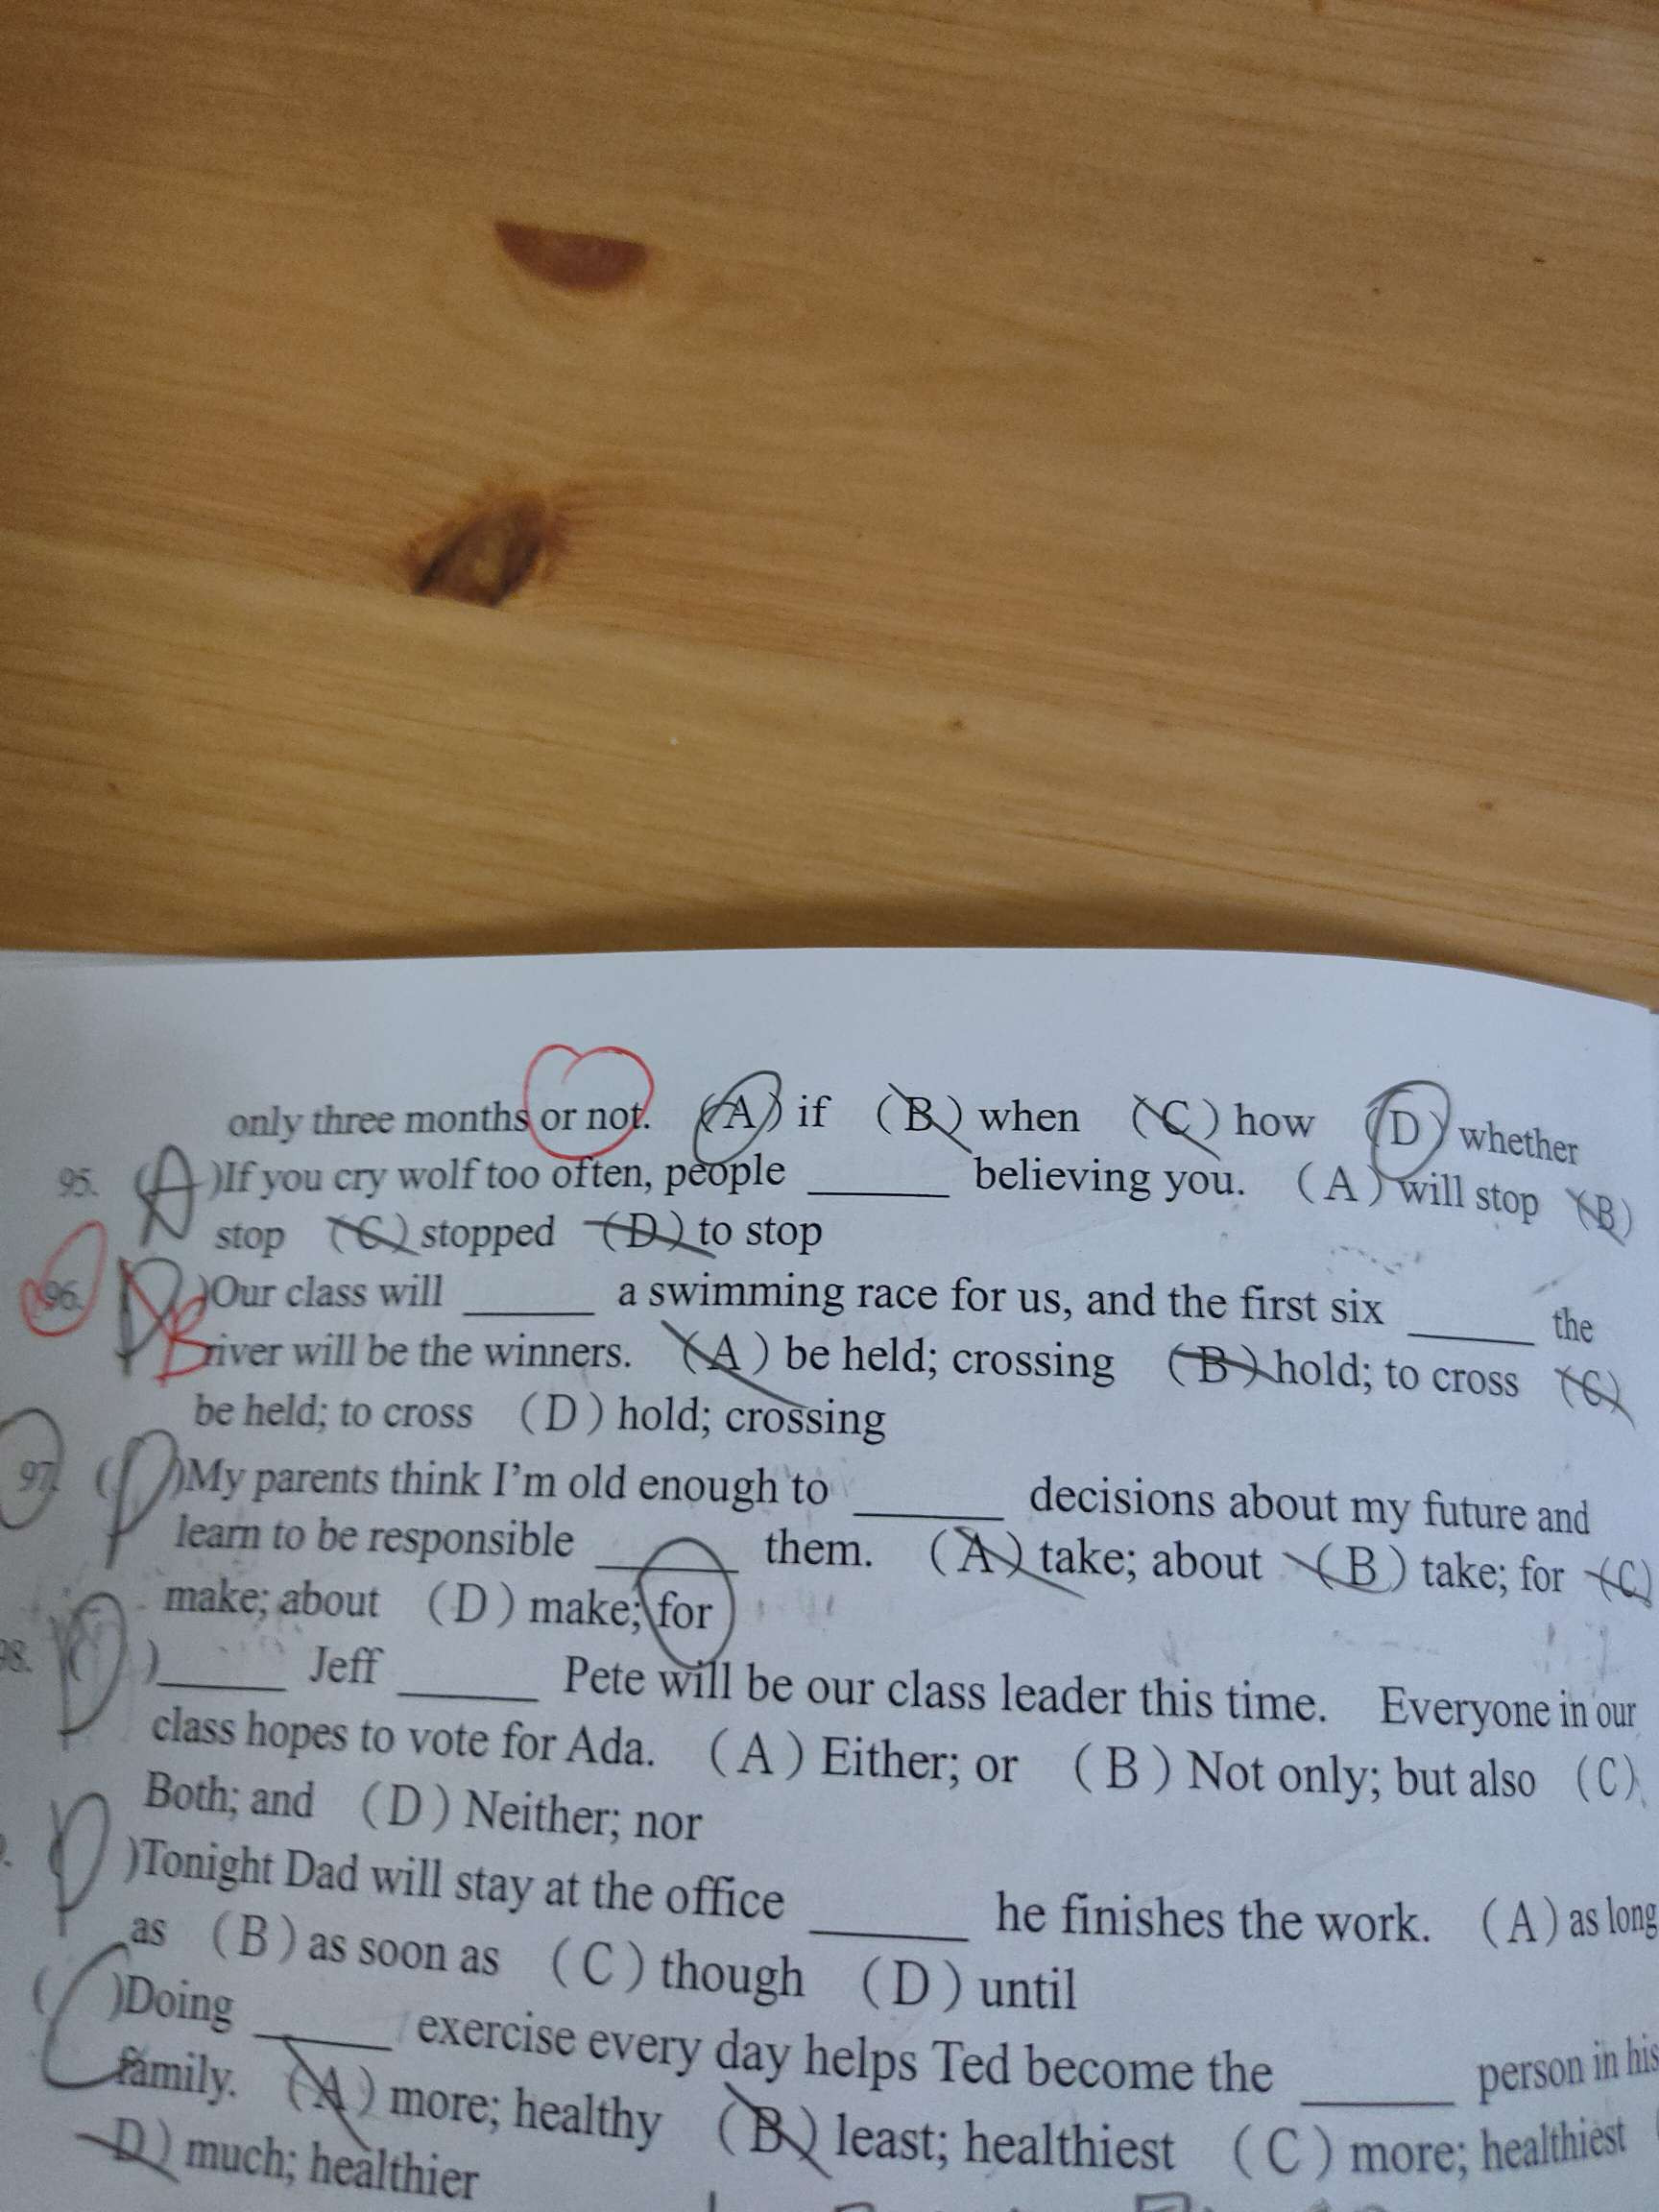 only three months or not. (A) if (B) when (C) how (D) whether
95. (A)If you cry wolf too often, people ______ believing you. (A) will stop (B)
stop (C) stopped (D) to stop
96. (D B)Our class will ______ a swimming race for us, and the first six ______ the
river will be the winners. (A) be held; crossing (B) hold; to cross (C)
be held; to cross (D) hold; crossing
97. (D)My parents think I'm old enough to ______ decisions about my future and
learn to be responsible ______ them. (A) take; about (B) take; for (C)
make; about (D) make; for
98. (D)______ Jeff ______ Pete will be our class leader this time. Everyone in our
class hopes to vote for Ada. (A) Either; or (B) Not only; but also (C)
Both; and (D) Neither; nor
D )Tonight Dad will stay at the office ______ he finishes the work. (A) as long
as (B) as soon as (C) though (D) until
(C)Doing ______ exercise every day helps Ted become the ______ person in his
family. (A) more; healthy (B) least; healthiest (C) more; healthiest
D) much; healthier